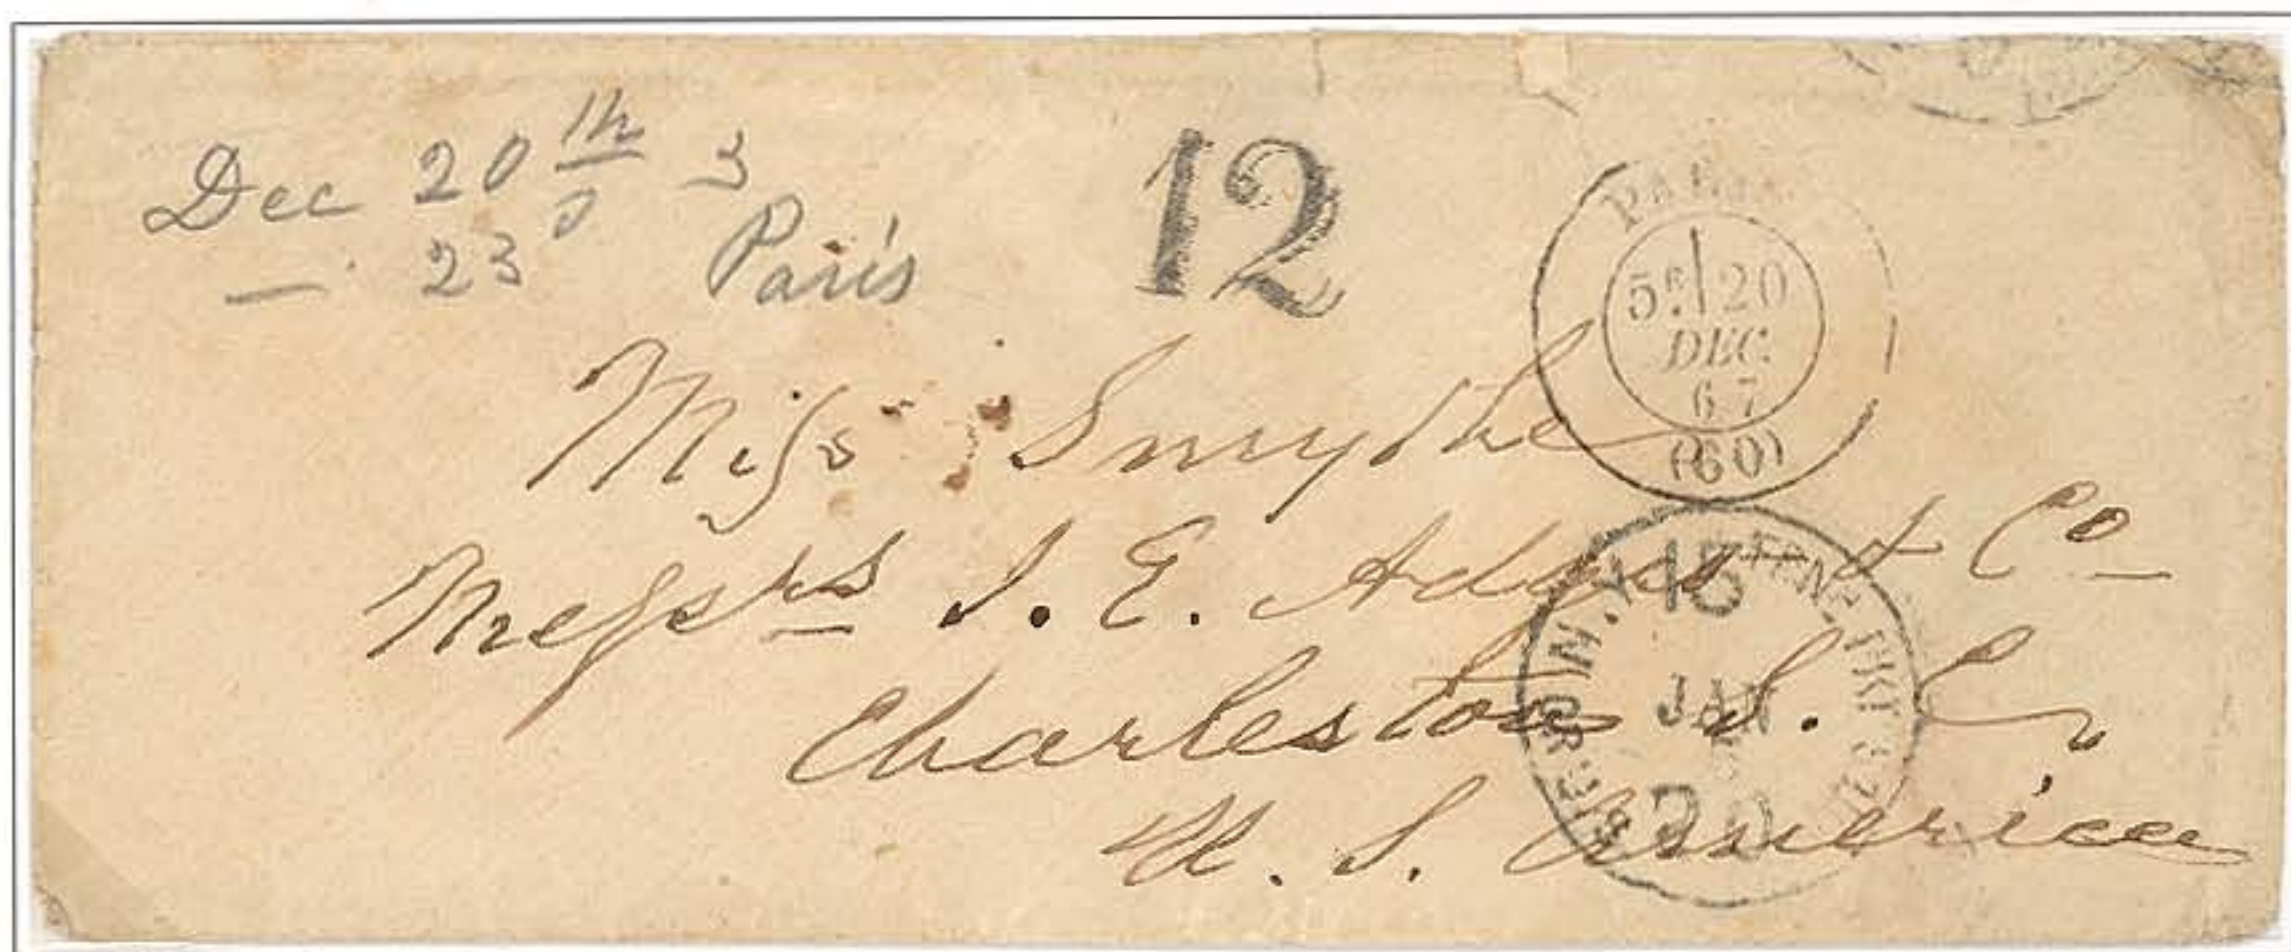 Dec 20th 3
— 23 Paris
12
PARIS
5E 20
DEC.
67
(60)
Miss Smythe
Messrs J. E. Adger & Co
Charleston S. C
U. S. America
N.Y.
15
JAN